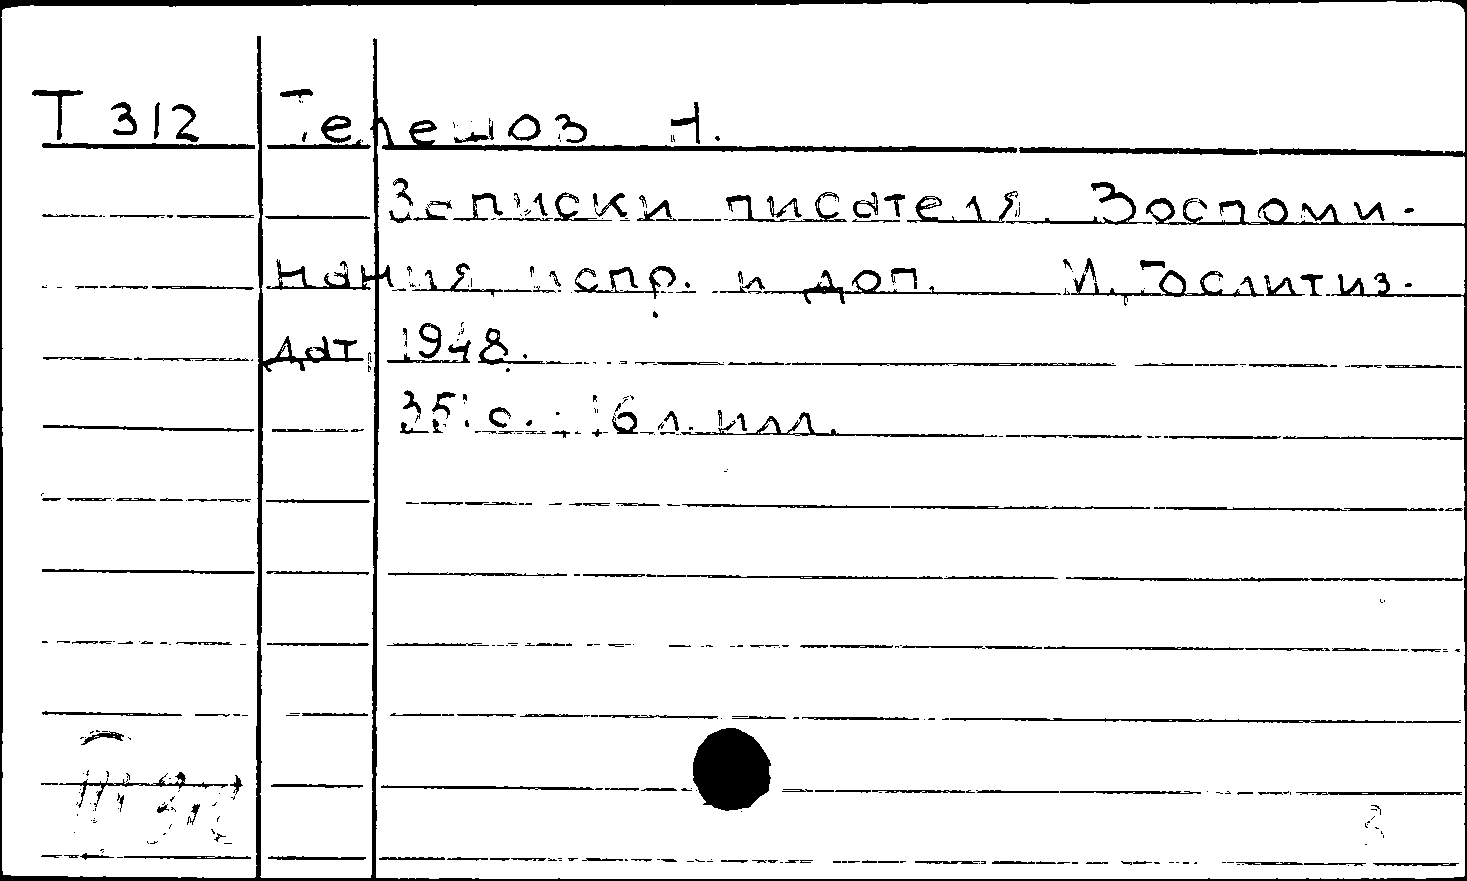 Т 312 Телешов Н.
Записки писателя. Воспоми-
нания, испр. и доп. М., Гослитиз-
дат, 1948.
351 с.; 16 л. илл.